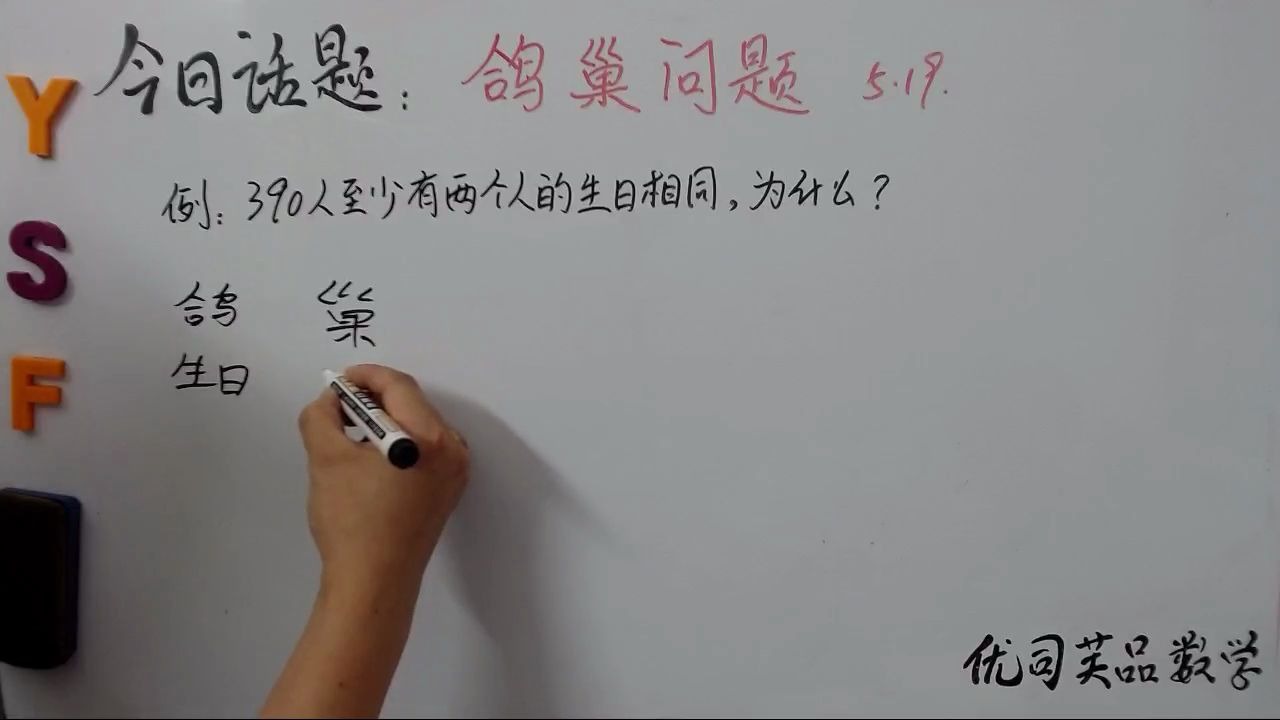 今日话题：鸽巢问题 5.19.
例：390人至少有两个人的生日相同，为什么？
鸽 巢
生日
Y
S
F
优司芙品数学